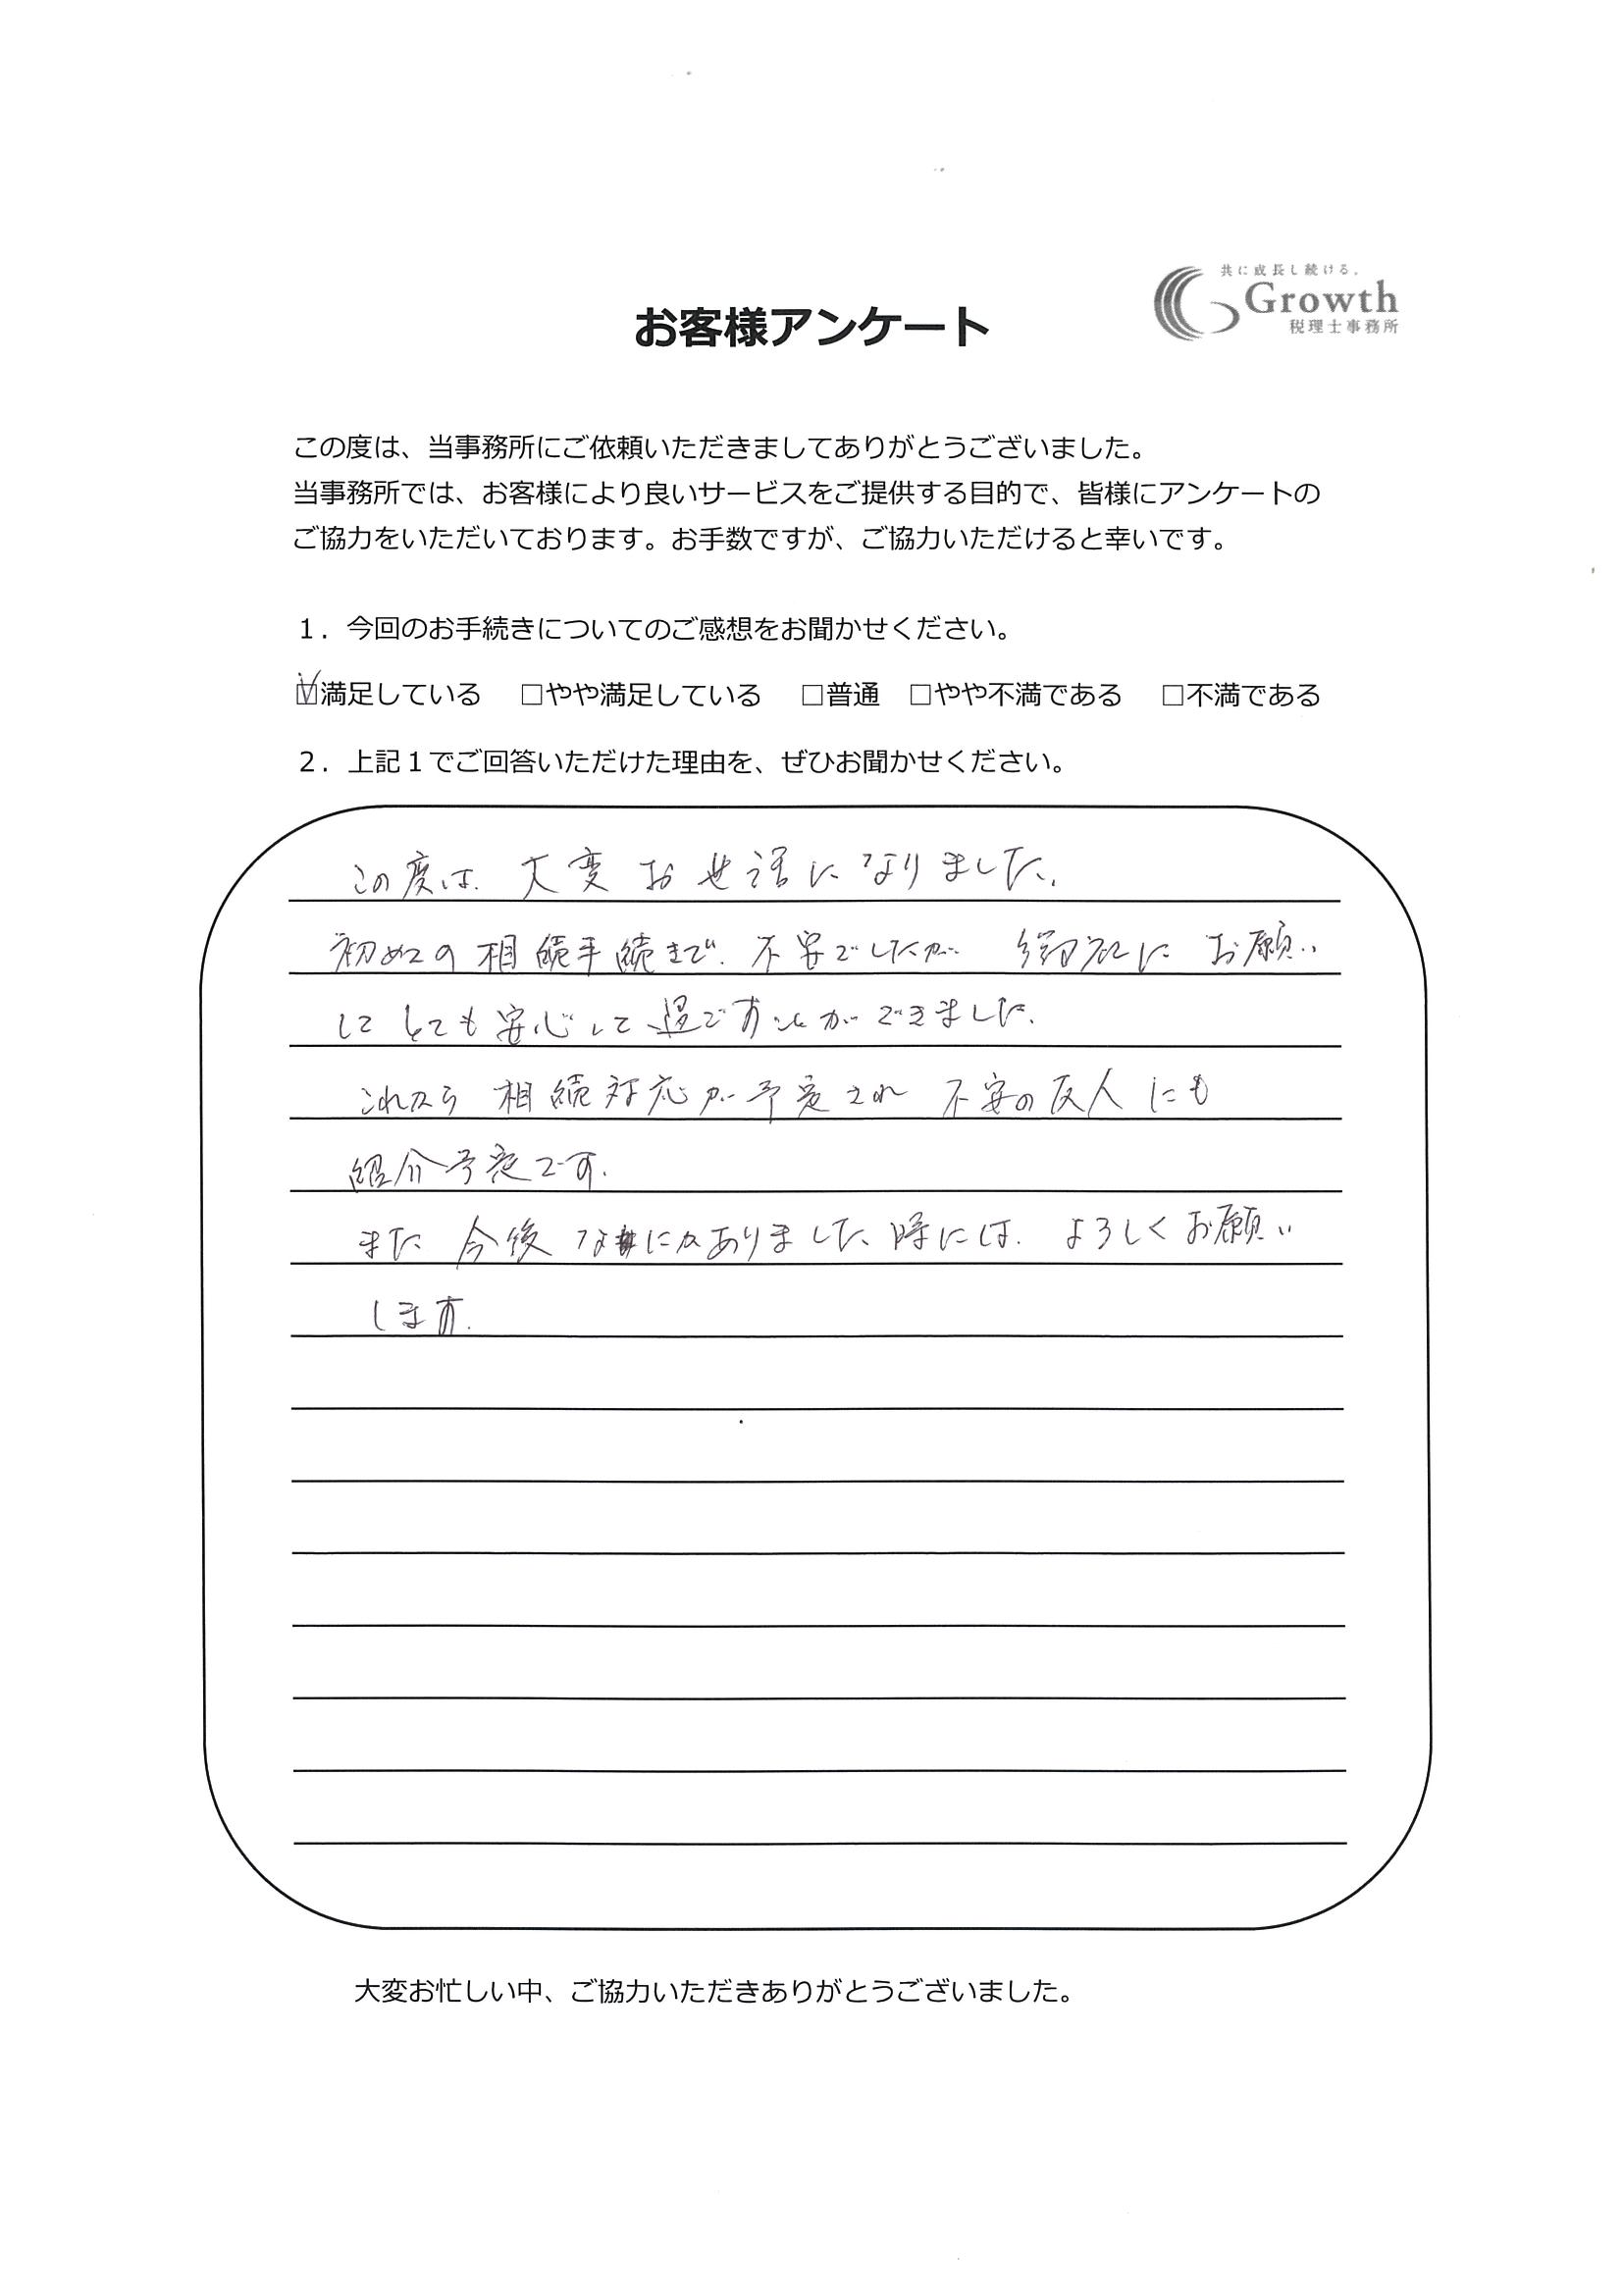 共に成長し続ける。
Growth
税理士事務所
お客様アンケート
この度は、当事務所にご依頼いただきましてありがとうございました。
当事務所では、お客様により良いサービスをご提供する目的で、皆様にアンケートの
ご協力をいただいております。お手数ですが、ご協力いただけると幸いです。
1．今回のお手続きについてのご感想をお聞かせください。
☑満足している　□やや満足している　□普通　□やや不満である　□不満である
2．上記１でご回答いただけた理由を、ぜひお聞かせください。
この度は、大変お世話になりました。
初めての相続手続きで、不安でしたが　御社に　お願い
して とても安心して過ごすことができました。
これから 相続対応が予定され 不安の友人にも
紹介予定です。
また 今後 なにかありました時には、よろしくお願い
します。
大変お忙しい中、ご協力いただきありがとうございました。